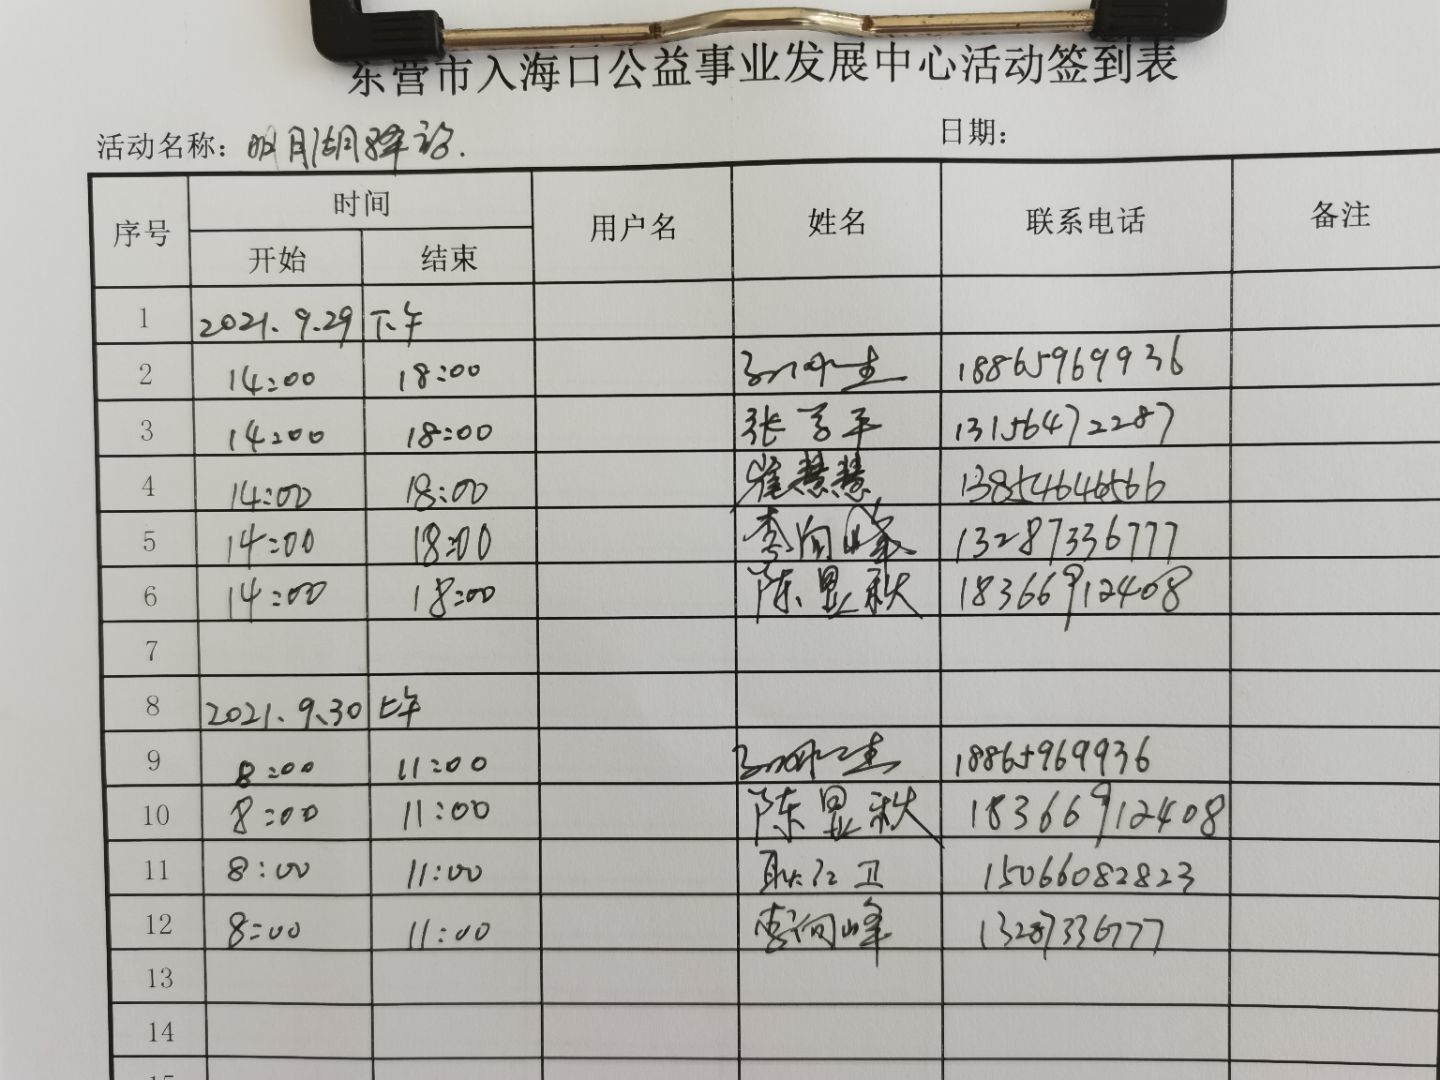 东营市入海口公益事业发展中心活动签到表
活动名称: 明月湖驿站. 日期:
序号 时间 用户名 姓名 联系电话 备注
开始 结束
1 2021.9.29 下午
2 14:00 18:00 18865969936
3 14:00 18:00 张学平 13156472287
4 14:00 18:00 崔慧慧 13854646566
5 14:00 18:00 李向峰 13287336777
6 14:00 18:00 陈显秋 18366912408
7
8 2021.9.30 上午
9 8:00 11:00 18865969936
10 8:00 11:00 陈显秋 18366912408
11 8:00 11:00 耿红卫 15066082823
12 8:00 11:00 李向峰 13287336777
13
14
15